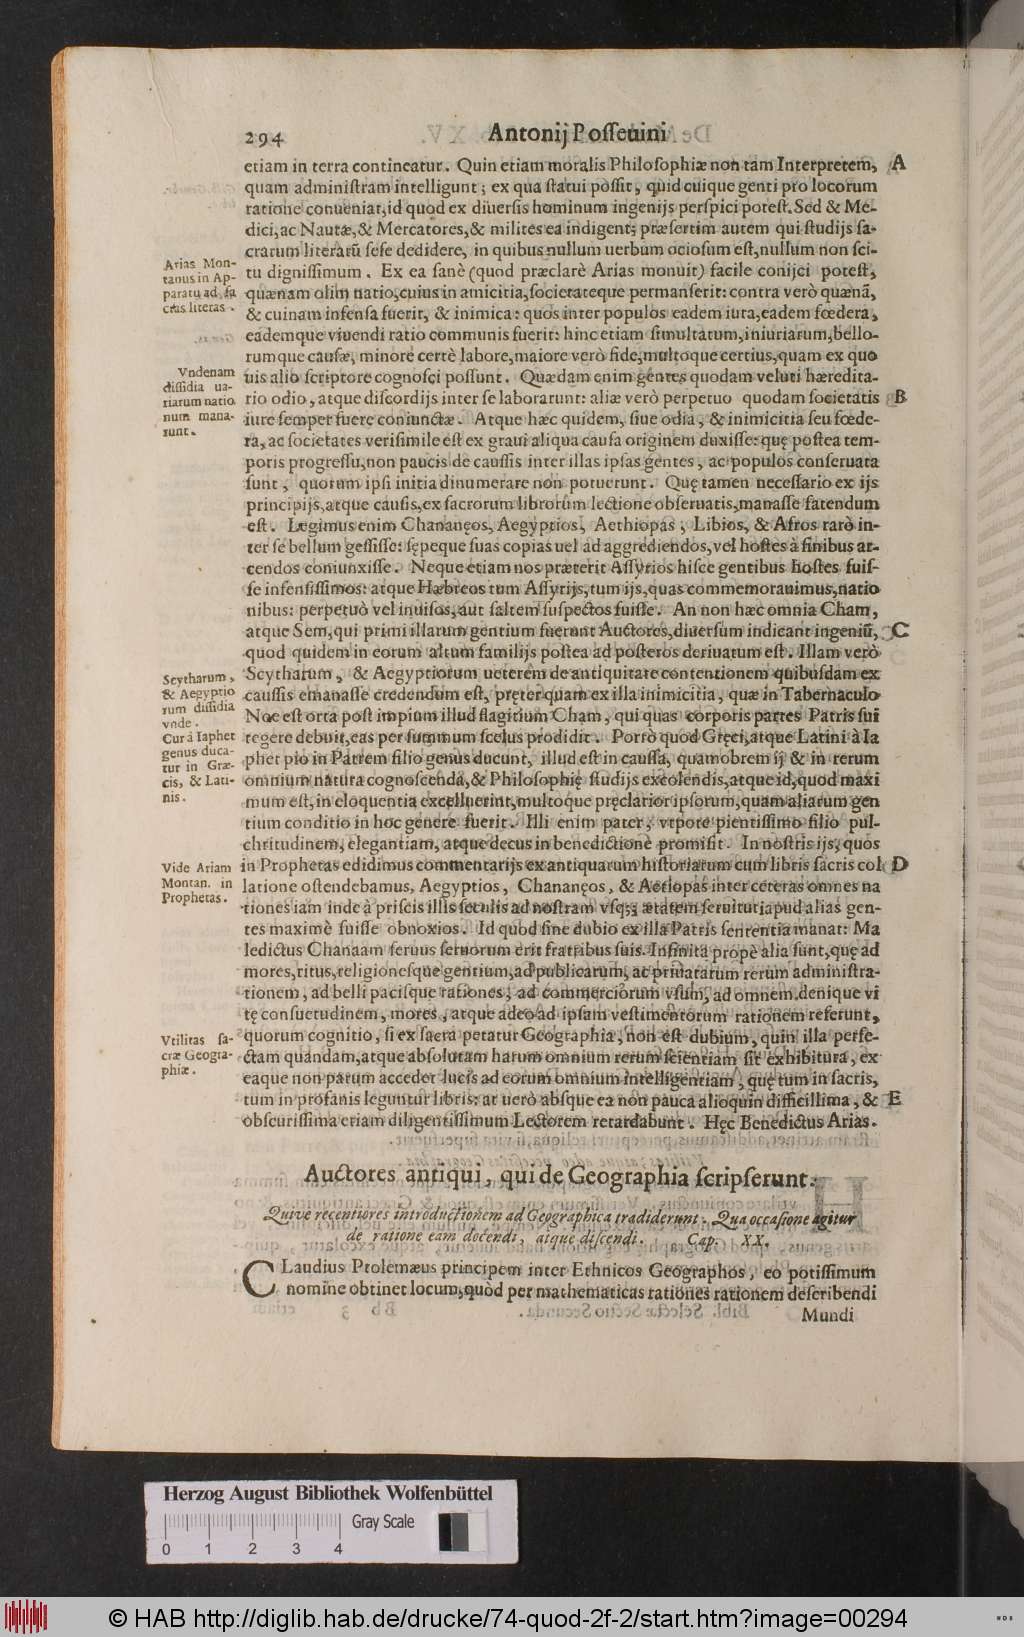 294 Antonij Posseuini
etiam in terra contineatur. Quin etiam moralis Philosophiæ non tàm Interpretem, A
quam administram intelligunt; ex qua statui possit, quid cuique genti pro locorum
ratione conueniat, id quod ex diuersis hominum ingenijs perspici potest. Sed & Me-
dici, ac Nautæ, & Mercatores, & milites ea indigent; præsertim autem qui studijs sa-
crarum literarũ sese dedidere, in quibus nullum uerbum ociosum est, nullum non sci-
Arias Mon-
tanus in Ap-
paratu ad sa
cras literas.
tu dignissimum. Ex ea sanè (quod præclarè Arias monuit) facile conijci potest,
quænam olim natio, cuius in amicitia, societateque permanserit: contra verò quænã,
& cuinam infensa fuerit, & inimica: quos inter populos eadem iura, eadem fœdera,
eademque viuendi ratio communis fuerit: hinc etiam simultatum, iniuriarum, bello-
rumque causæ, minore certè labore, maiore verò fide, multoque certius, quam ex quo
Vndenam
dissidia ua-
riarum natio
num mana-
runt.
uis alio scriptore cognosci possunt. Quædam enim gentes quodam veluti hæredita-
rio odio, atque discordijs inter se laborarunt: aliæ verò perpetuo quodam societatis B
iure semper fuere coniunctæ. Atque hæc quidem, siue odia, & inimicitia seu fœde-
ra, ac societates verisimile est ex graui aliqua causa originem duxisse: quę postea tem-
poris progressu, non paucis de caussis inter illas ipsas gentes, ac populos conseruata
sunt, quorum ipsi initia dinumerare non potuerunt. Quę tamen necessario ex ijs
principijs, atque causis, ex sacrorum librorum lectione obseruatis, manasse fatendum
est. Legimus enim Chananęos, Aegyptios, Aethiopas, Libios, & Afros rarò in-
ter se bellum gessisse: sępeque suas copias uel ad aggrediendos, vel hostes à finibus ar-
cendos coniunxisse. Neque etiam nos præterit Assyrios hisce gentibus hostes fuis-
se infensissimos: atque Hæbreos tum Assyrijs, tum ijs, quas commemorauimus, natio
nibus: perpetuò vel inuisos, aut saltem suspectos fuisse. An non hæc omnia Cham,
atque Sem, qui primi illarum gentium fuerunt Auctores, diuersum indicant ingeniũ, C
quod quidem in eorum altum familijs postea ad posteros deriuatum est. Illam verò
Scytharum,
& Aegyptio
rum dissidia
vnde.
Cur à Iaphet
genus duca-
tur in Græ-
cis, & Lati-
nis.
Scytharum, & Aegyptiorum ueterem de antiquitate contentionem quibusdam ex
caussis emanasse credendum est, pręter quam ex illa inimicitia, quæ in Tabernaculo
Noe est orta post impium illud flagitium Cham, qui quas corporis partes Patris sui
tegere debuit, eas per summum scelus prodidit. Porrò quod Gręci, atque Latini à Ia
phet pio in Patrem filio genus ducunt, illud est in caussa, quamobrem ij & in rerum
omnium natura cognoscenda, & Philosophię studijs excolendis, atque id, quod maxi
mum est, in eloquentia excelluerint, multoque pręclarior ipsorum, quam aliarum gen
tium conditio in hoc genere fuerit. Illi enim pater, vtpote pientissimo filio pul-
chritudinem, elegantiam, atque decus in benedictione promisit. In nostris ijs, quos
Vide Ariam
Montan. in
Prophetas.
in Prophetas edidimus commentarijs ex antiquarum historiarum cum libris sacris col D
latione ostendebamus, Aegyptios, Chananęos, & Aetiopas inter cęteras omnes na
tiones iam inde à priscis illis seculis ad nostram vsq; ætatem seruituti apud alias gen-
tes maximè fuisse obnoxios. Id quod sine dubio ex illa Patris sententia manat: Ma
ledictus Chanaam seruus seruorum erit fratribus suis. Infinita propè alia sunt, quę ad
mores, ritus, religionesque gentium, ad publicarum, ac priuatarum rerum administra-
tionem, ad belli pacisque rationes; ad commerciorum vsum, ad omnem denique vi
tę consuetudinem, mores, atque adeo ad ipsam vestimentorum rationem referunt,
Vtilitas sa-
cræ Geogra-
phiæ.
quorum cognitio, si ex sacra petatur Geographia, non est dubium, quin illa perfe-
ctam quandam, atque absolutam harum omnium rerum scientiam sit exhibitura, ex
eaque non parum accedet lucis ad eorum omnium intelligentiam, quę tum in sacris,
tum in profanis leguntur libris: at uerò absque ea non pauca alioquin difficillima, & E
obscurissima etiam diligentissimum Lectorem retardabunt. Hęc Benedictus Arias.
Auctores antiqui, qui de Geographia scripserunt.
Quiue recentiores introductionem ad Geographica tradiderunt. Qua occasione agitur
de ratione eam docendi, atque discendi. Cap. XX.
CLaudius Ptolemæus principem inter Ethnicos Geographos, eo potissimum
nomine obtinet locum, quòd per mathematicas rationes rationem describendi
Mundi
Herzog August Bibliothek Wolfenbüttel
Gray Scale
0 1 2 3 4
© HAB http://diglib.hab.de/drucke/74-quod-2f-2/start.htm?image=00294